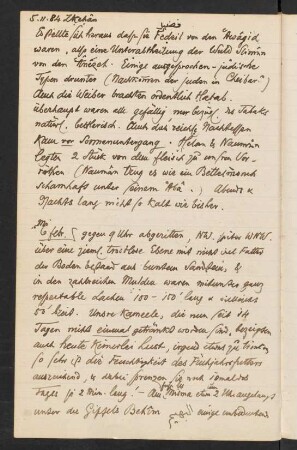 5.II.84 Zkehân
Es stellte sich heraus daß sie Fedsîl von den Hwâzîd
waren, also eine Unterabtheilung der Wuld Slimân
von den Anezeh. Einige ausgesprochen-jüdische
Typen drunter (Nachkommen der Juden in Cheibar?)
Auch die Weiber brachten ordentlich Hatab.
überhaupt waren alle gefällig nur bezügl. des Tabaks
natürl. bettlerisch. Auch das reichte Nachtessen
kam vor Sonnenuntergang. Helan & Naumân
legten 2 Stück von dem Fleisch zu unsren Vor-
räthen (Naumân trug es wie ein Bettelmönch
schamhaft unter seinem Abâ.) Abends u
Nachts lang nicht so kalt wie bisher.
6 febr. gegen 9 Uhr abgeritten, NW. später WNW.
über eine ziemlich trostlose Ebene mit nicht viel Futter
der Boden bestand aus buntem Sandstein, &
in den zahlreichen Mulden waren mitunter ganz
respectable Lachen 100 - 150' lang &
50' breit. Unsre Kameele, die nun seit 14
Tagen nicht einmal getränkt worden sind, bezeigten
auch heute keinerlei Lust, irgend etwas zu trinken
so sehr ist die Feuchtigkeit des Frühjahrsfutters
ausreichend, u dabei
Tages je 2 Min. lang! - Um 2 Uhr angelangt
unter die Gipfels einige unbedeutend